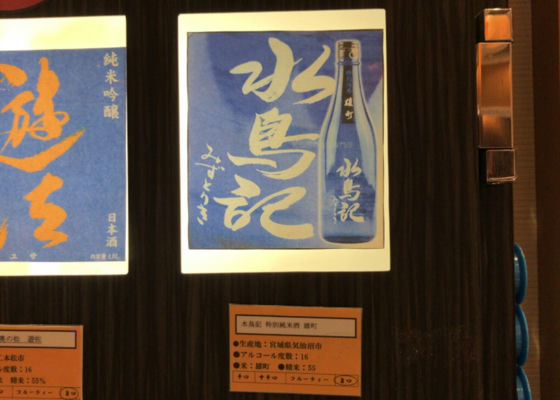 純米吟醸
遊佐
日本酒
ユサ
水鳥記
みずとりき
雄町
水鳥記
奥の松 遊佐
二本松市
ール度数：16
精米：55%
フルーティー
旨口
水鳥記 特別純米酒 雄町
●生産地：宮城県気仙沼市
●アルコール度数：16
●米：雄町 ●精米：55
辛口 中辛口 フルーティー 旨口